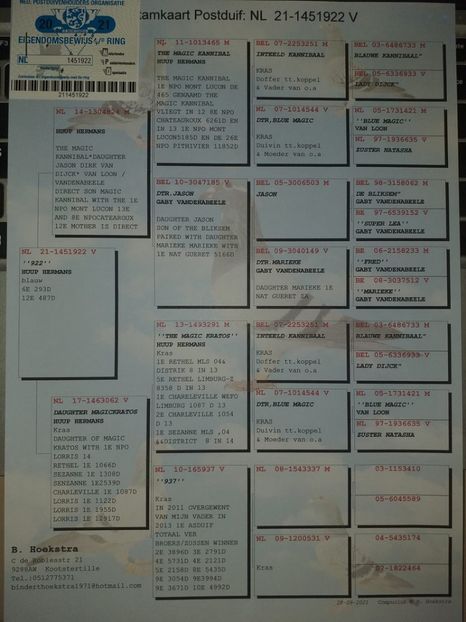 NED. POSTDUIVENHOUDERS ORGANISATIE
20 21
EIGENDOMSBEWIJS RING
NL 1451922
211451922
Stamkaart Postduif: NL 21-1451922 V
NL 21-1451922 V
''922''
HUUP HERMANS
blauw
6E 293D
12E 487D
NL 14-1304824 M
HUUP HERMANS
THE MAGIC
KANNIBAL*DAUGHTER
JASON DIRK VAN
DIJCK* VAN LOON /
VANDENABEELE
DIRECT SON MAGIC
KANNIBAL WITH THE 1E
NPO MONT LUCON 13E
AND 8E NPOCATEAROUX
12E MOTHER IS DIRECT
NL 17-1463062 V
DAUGHTER MAGICKRATOS
HUUP HERMANS
Kras
DAUGHTER OF MAGIC
KRATOS WITH 1E NPO
LORRIS 14
RETHEL 1E 1066D
SEZANNE 1E 1308D
SENZANNE 1E2539D
CHARLEVILLE 1E 1087D
LORRIS 1E 1122D
LORRIS 1E 1955D
LORRIS 1E 12917D
NL 11-1013465 M
THE MAGIC KANNIBAL
HUUP HERMANS
THE MAGIC KANNIBAL
1E NPO MONT LUCON DE
465 GENAAMD THE
MAGIC KANNIBAL
VLIEGT IN 12 8E NPO
CHATEAUROUX 6261D EN
IN 13 1E NPO MONT
LUCON5185D EN DE 26E
NPO PITHIVIER 11852D
BEL 10-3047185 V
DTR.JASON
GABY VANDENABEELE
DAUGHTER JASON
SON OF THE BLIKSEM
PAIRED WITH DAUGHTER
MARIEKE MARIEKE WITH
1E NAT GUERET 5166D
NL 13-1493291 M
''THE MAGIC KRATOS''
HUUP HERMANS
Kras
1E RETHEL MLS 04&
DISTRIK 8 IN 13
5E RETHEL LIMBURG-Z
8358 D IN 13
1E CHARELEVILLE WEFO
LIMBURG 1087 D 13
2E CHARLEVILLE 1054
D 13
1E SEZANNE MLS ,04
&&DISTRICT 8 IN 14
NL 10-165937 V
''937''
Kras
IN 2011 OVERGEWENT
VAN MIJN VADER IN
2013 1E ASDUIF
TOTAAL VER
BROERS/ZUSSEN WINNEN
2E 3896D 3E 2791D
4E 5731D 4E 2121D
5E 2158D 8E 5435D
9E 3054D 9E3994D
9E 3671D 10E 4992D
BEL 07-2253251 M
INTEELD KANNIBAAL
KRAS
Doffer tt.koppel
& Vader van o.a
NL 07-1014544 V
DTR,BLUE MAGIC
KRAS
Duivin tt.koppel
& Moeder van o.a
BEL 05-3006503 M
JASON
BEL 09-3040149 V
DTR.MARIEKE
GABY VANDENABEELE
DAUGHTER MARIEKE 1E
NAT GUERET ZA
BEL 07-2253251 M
INTEELD KANNIBAAL
KRAS
Doffer tt.koppel
& Vader van o.a
NL 07-1014544 V
DTR,BLUE MAGIC
KRAS
Duivin tt.koppel
& Moeder van o.a
NL 08-1543337 M
NL 09-1200531 V
Kras
BEL 03-6486733 M
BLAUWE KANNIBAAL"
BEL 05-6336933 V
LADY DIJCK"
NL 05-1731421 M
''BLUE MAGIC''
VAN LOON
NL 97-1936635 V
ZUSTER NATASHA
BEL 98-3158062 M
DE BLIKSEM"
GABY VANDENABEELE
BE 97-6539152 V
''SUPER LEA''
GABY VANDENABEELE
BE 06-2158233 M
''FRED''
GABY VANDENABEELE
BE 08-3037512 V
''MARIEKE''
GABY VANDENABEELE
BEL 03-6486733 M
BLAUWE KANNIBAAL"
BEL 05-6336933 V
LADY DIJCK"
NL 05-1731421 M
''BLUE MAGIC''
VAN LOON
NL 97-1936635 V
ZUSTER NATASHA
03-1153410
05-6045589
04-5435174
02-1822464
B. Hoekstra
C de Roblesstr 21
9288AW Kootstertille
Tel.:0512775371
binderthoekstra1971@hotmail.com
28-09-2021 Compuclub © B. Hoekstra